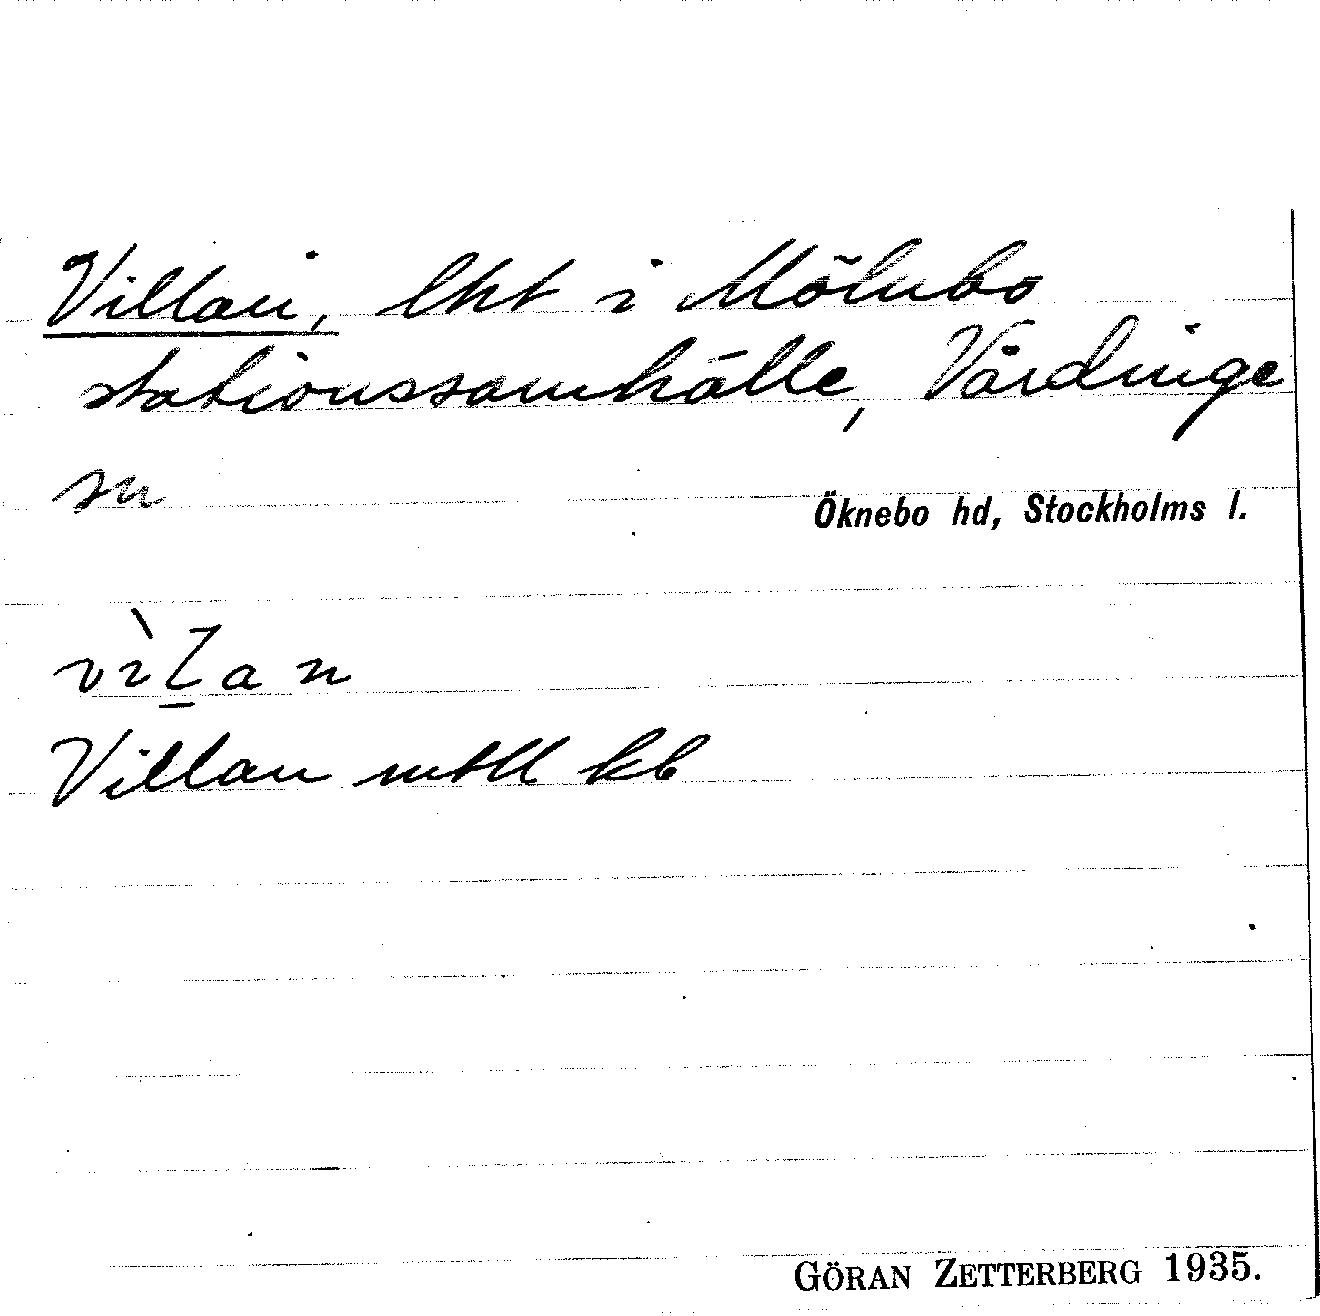 Villan, lht i Mölnbo
stationssamhälle, Vårdinge
sn
Öknebo hd, Stockholms l.
vìl̲an
Villan mtll kb
GÖRAN ZETTERBERG 1935.